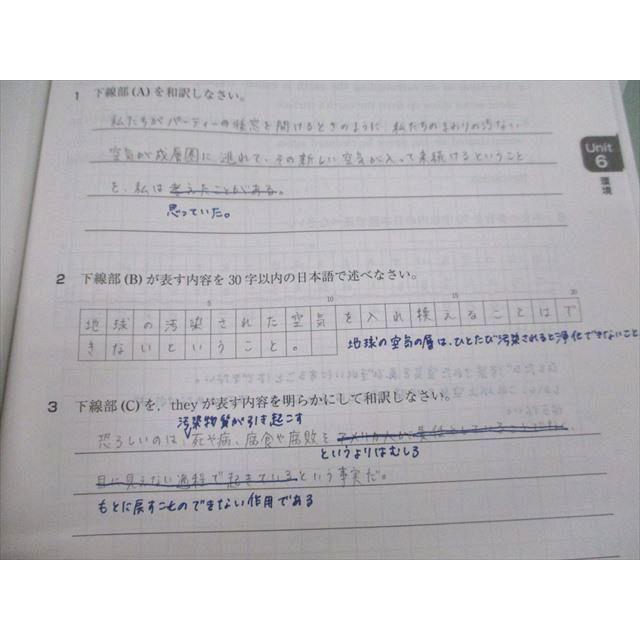 1 下線部(A)を和訳しなさい。
私たちがパーティーの後窓を開けるときのように、私たちのまわりの汚ない
空気が成層圏に逃れて、その新しい空気が入って来続けるということ
を、私は考えたことがある。
思っていた。
Unit
6
環境
2 下線部(B)が表す内容を30字以内の日本語で述べなさい。
5 10 15 20
地球の汚染された空気を入れ換えることはで
きないということ。
地球の空気の層は、ひとたび汚染されると浄化できないこと
3 下線部(C)を, theyが表す内容を明らかにして和訳しなさい。
汚染物質が引き起こす
恐ろしいのは、死や病、腐食や腐敗を
というよりはむしろ
目に見えない過程で起きているという事実だ。
もとに戻すことのできない作用である